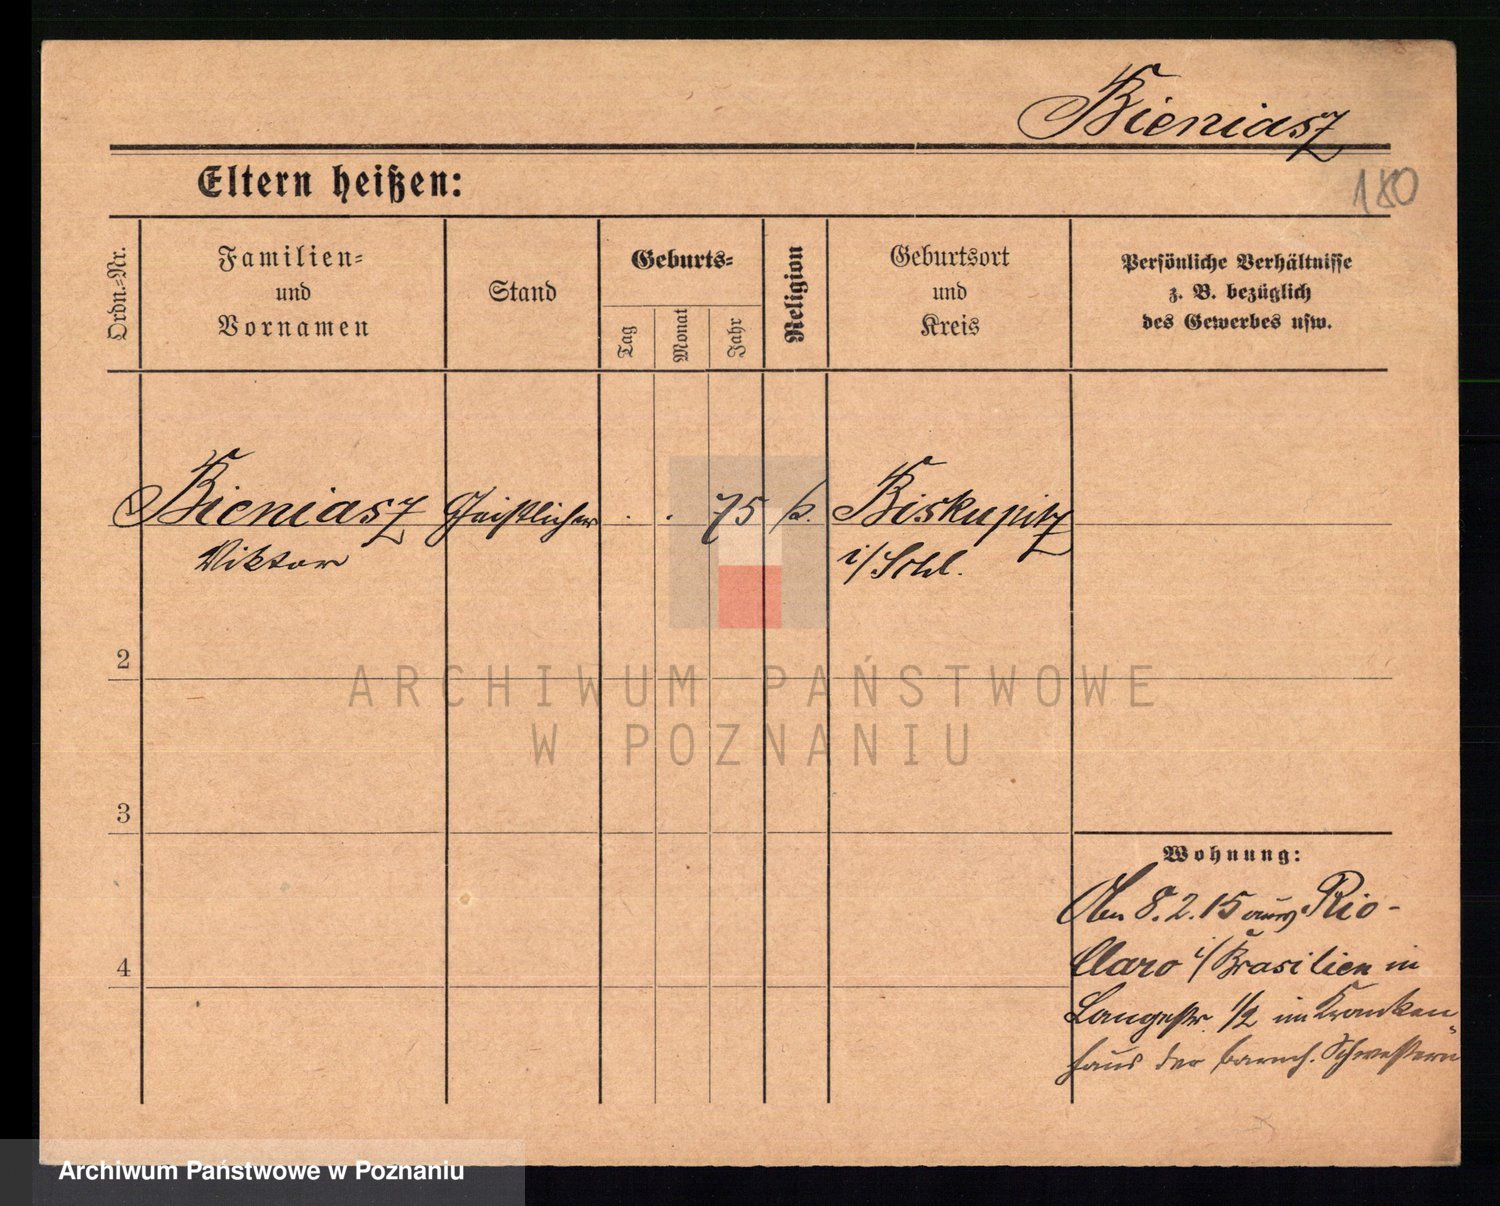 Bieniasz
Eltern heißen:
180
Ordn.-Nr.
Familien-
und
Vornamen
Stand
Geburts-
Tag
Monat
Jahr
Religion
Geburtsort
und
Kreis
Persönliche Verhältnisse
z. B. bezüglich
des Gewerbes usw.
1
Bieniasz Geistlicher . . 75 k. Biskupitz
Viktor i/Schl.
2
ARCHIWUM PAŃSTWOWE
W POZNANIU
3
Wohnung:
8.2.15 aus Rio-
Claro i/Brasilien in
Langestr. 1/2 im Kranken
haus der barmh. Schwestern
4
Archiwum Państwowe w Poznaniu